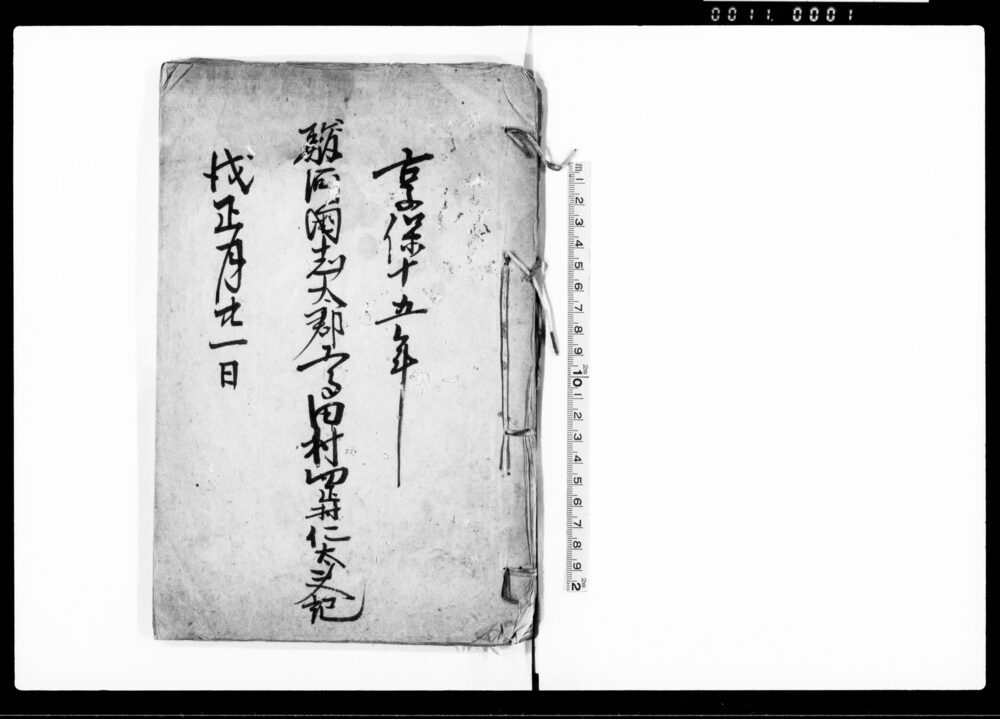 0011 0001
享保十五年
駿河国志太郡田村仁太夫記
戌正月廿一日
m 1 2 3 4 5 6 7 8 9 10 1 2 3 4 5 6 7 8 9 2